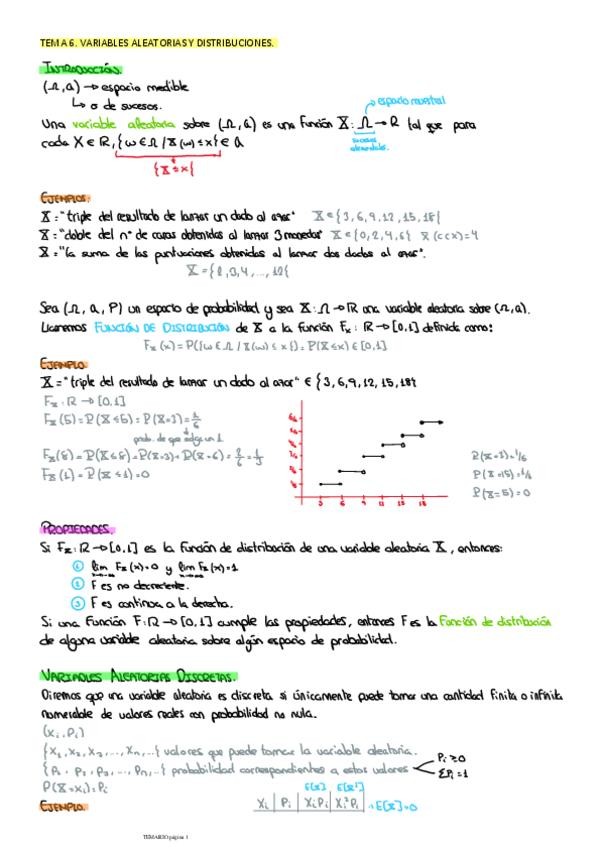 TEMA 6. VARIABLES ALEATORIAS Y DISTRIBUCIONES.
INTRODUCCIÓN.
(Ω, a) → espacio medible
↳ σ de sucesos.
espacio muestral
Una variable aleatoria sobre (Ω, a) es una función X: Ω → R tal que para
sucesos elementales.
cada X ∈ R, {ω ∈ Ω / X(ω) ≤ x} ∈ a
{X ≤ x}
EJEMPLOS:
X = "triple del resultado de lanzar un dado al azar" X ∈ {3, 6, 9, 12, 15, 18}
X = "doble del nº de caras obtenidas al lanzar 3 monedas" X ∈ {0, 2, 4, 6} X(ccx) = 4
X = "la suma de las puntuaciones obtenidas al lanzar dos dados al azar".
X = {2, 3, 4, ..., 12}
Sea (Ω, a, P) un espacio de probabilidad y sea X: Ω → R una variable aleatoria sobre (Ω, a).
Llamamos FUNCIÓN DE DISTRIBUCIÓN de X a la función Fx : R → [0,1] definida como:
Fx (x) = P({ω ∈ Ω / X(ω) ≤ x}) = P(X ≤ x) ∈ [0,1]
EJEMPLO
X = "triple del resultado de lanzar un dado al azar" ∈ {3, 6, 9, 12, 15, 18}
Fx : R → [0,1]
Fx (5) = P(X ≤ 5) = P(X=3) = 1/6
prob. de que salga un 1
Fx (8) = P(X ≤ 8) = P(X=3) + P(X=6) = 2/6 = 1/3
Fx (1) = P(X ≤ 1) = 0
3 6 9 12 15 18
P(X=3) = 1/6
P(X=15) = 1/6
P(X=5) = 0
PROPIEDADES.
Si Fx : R → [0,1] es la función de distribución de una variable aleatoria X, entonces:
① lim Fx (x) = 0 y lim Fx (x) = 1
② F es no decreciente.
③ F es continua a la derecha.
Si una función F: R → [0,1] cumple las propiedades, entonces F es la función de distribución
de alguna variable aleatoria sobre algún espacio de probabilidad.
VARIABLES ALEATORIAS DISCRETAS.
Diremos que una variable aleatoria es discreta si únicamente puede tomar una cantidad finita o infinita
numerable de valores reales con probabilidad no nula.
(xi, Pi)
{x1, x2, x3, ..., xn, ...} valores que puede tomar la variable aleatoria.
{P1, P2, P3, ..., Pn, ...} probabilidad correspondientes a estos valores
Pi ≥ 0
ΣPi = 1
P(X = xi) = Pi
EJEMPLO.
E[X] E[X²]
xi | Pi | xiPi | xi²Pi
TEMARIO página 1